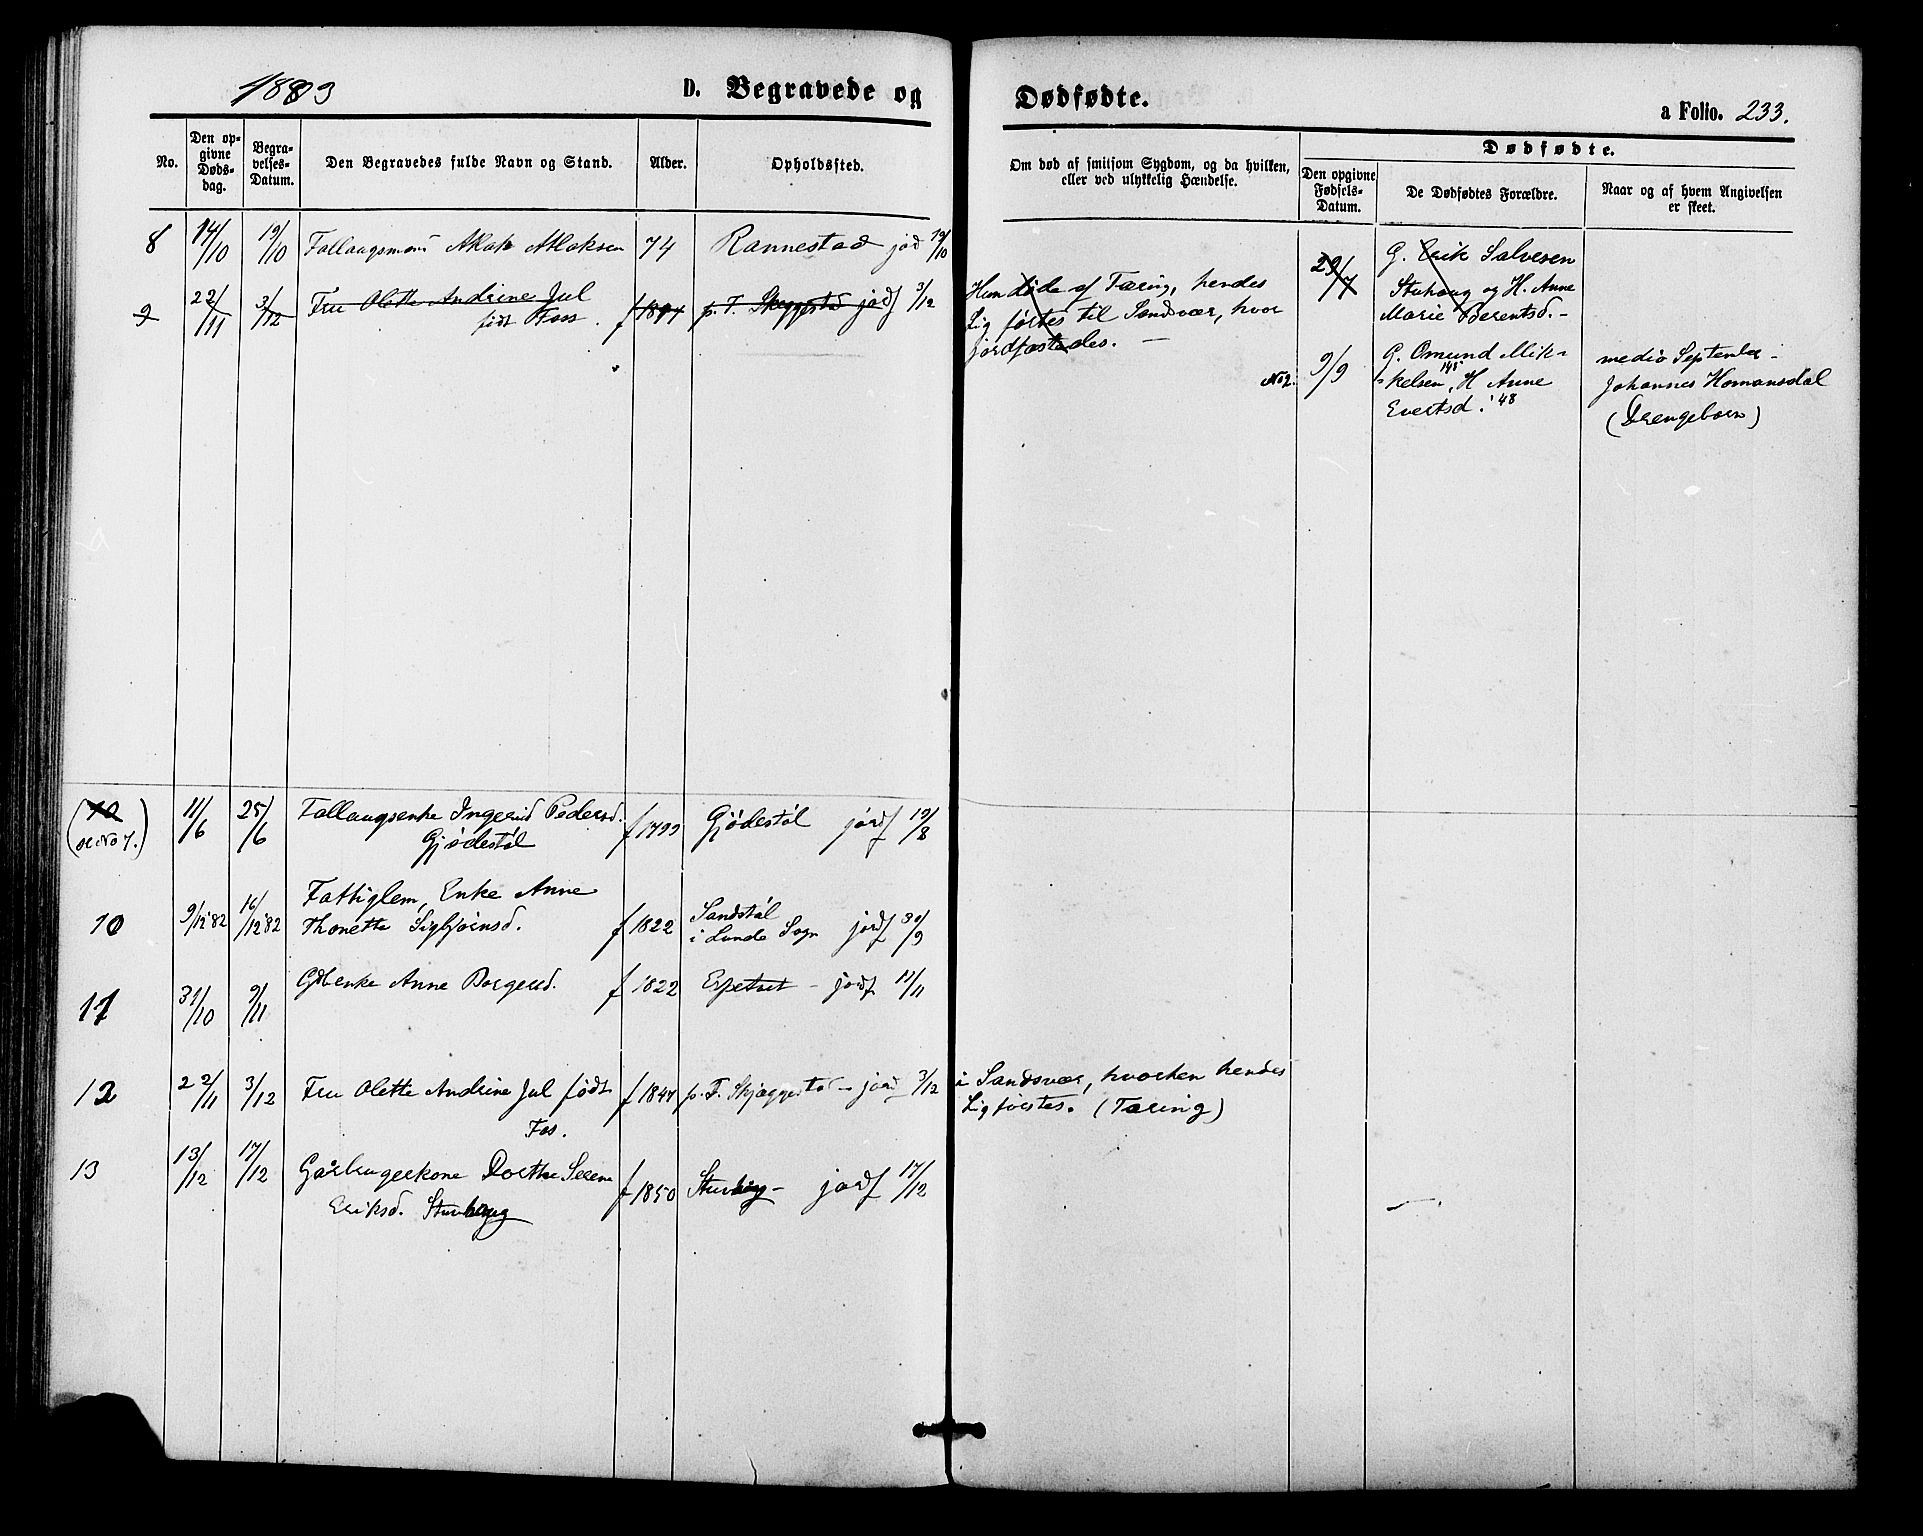 1883
D. Begravede og
Dødfødte.
a Folio. 233.
No.
Den op-
givne
Døds-
dag.
Begra-
velses-
Datum.
Den Begravedes fulde Navn og Stand.
Alder.
Opholdssted.
Om død af smitsom Sygdom, og da hvilken,
eller ved ulykkelig Hændelse.
Dødfødte.
Den opgivne
Fødsels-
Datum.
De Dødfødtes Forældre.
Naar og af hvem Angivelsen
er skeet.
8 14/10 19/10 Follaugsmand Aslak Aslaksen 74 Rannestad jod 19/10
9 22/11 3/12 Fru Olette Andrine Jul
født Foss. f 1847 p. T. Skeggestad jordf 3/12
Hun døde af Tæring, hendes
Lig førtes til Sandsvær, hvor
jordfæstedes. —
29/7 G. Erik Salvesen
Stuhaug og H. Anne
Marie Berentsd. -
No 2. 9/9 G. Omund Mik-
kelsen '45, H Anne
Evertsd. '48
medio September -
Johannes Homansdal
(Drengebarn)
(10
se No 7.) 11/6 25/6 Follaugsenke Ingerid Pedersd.
Gjødestøl f 1799 Gjødestøl jordf 19/8
10 9/12 82 16/12 82 Fattiglem, Enke Anne
Thonette Sigbjørnsd. f 1822 Sandstøl
i Lunde Sogn jordf 30/9
11 31/10 9/11 Gdbenke Anne Borgersd. f 1822 Espetvet - jordf 11/11
12 22/11 3/12 Fru Olette Andrine Jul født
Fos. f 1847 p. T. Skjæggestad - jord 3/12
i Sandsvær, hvorhen hendes
Lig førtes. (Tæring)
13 13/12 17/12 Gårbrugerkone Dorthe Serine
Eriksd. Stuvhaug f 1850 Stuvhaug - jordf 17/12